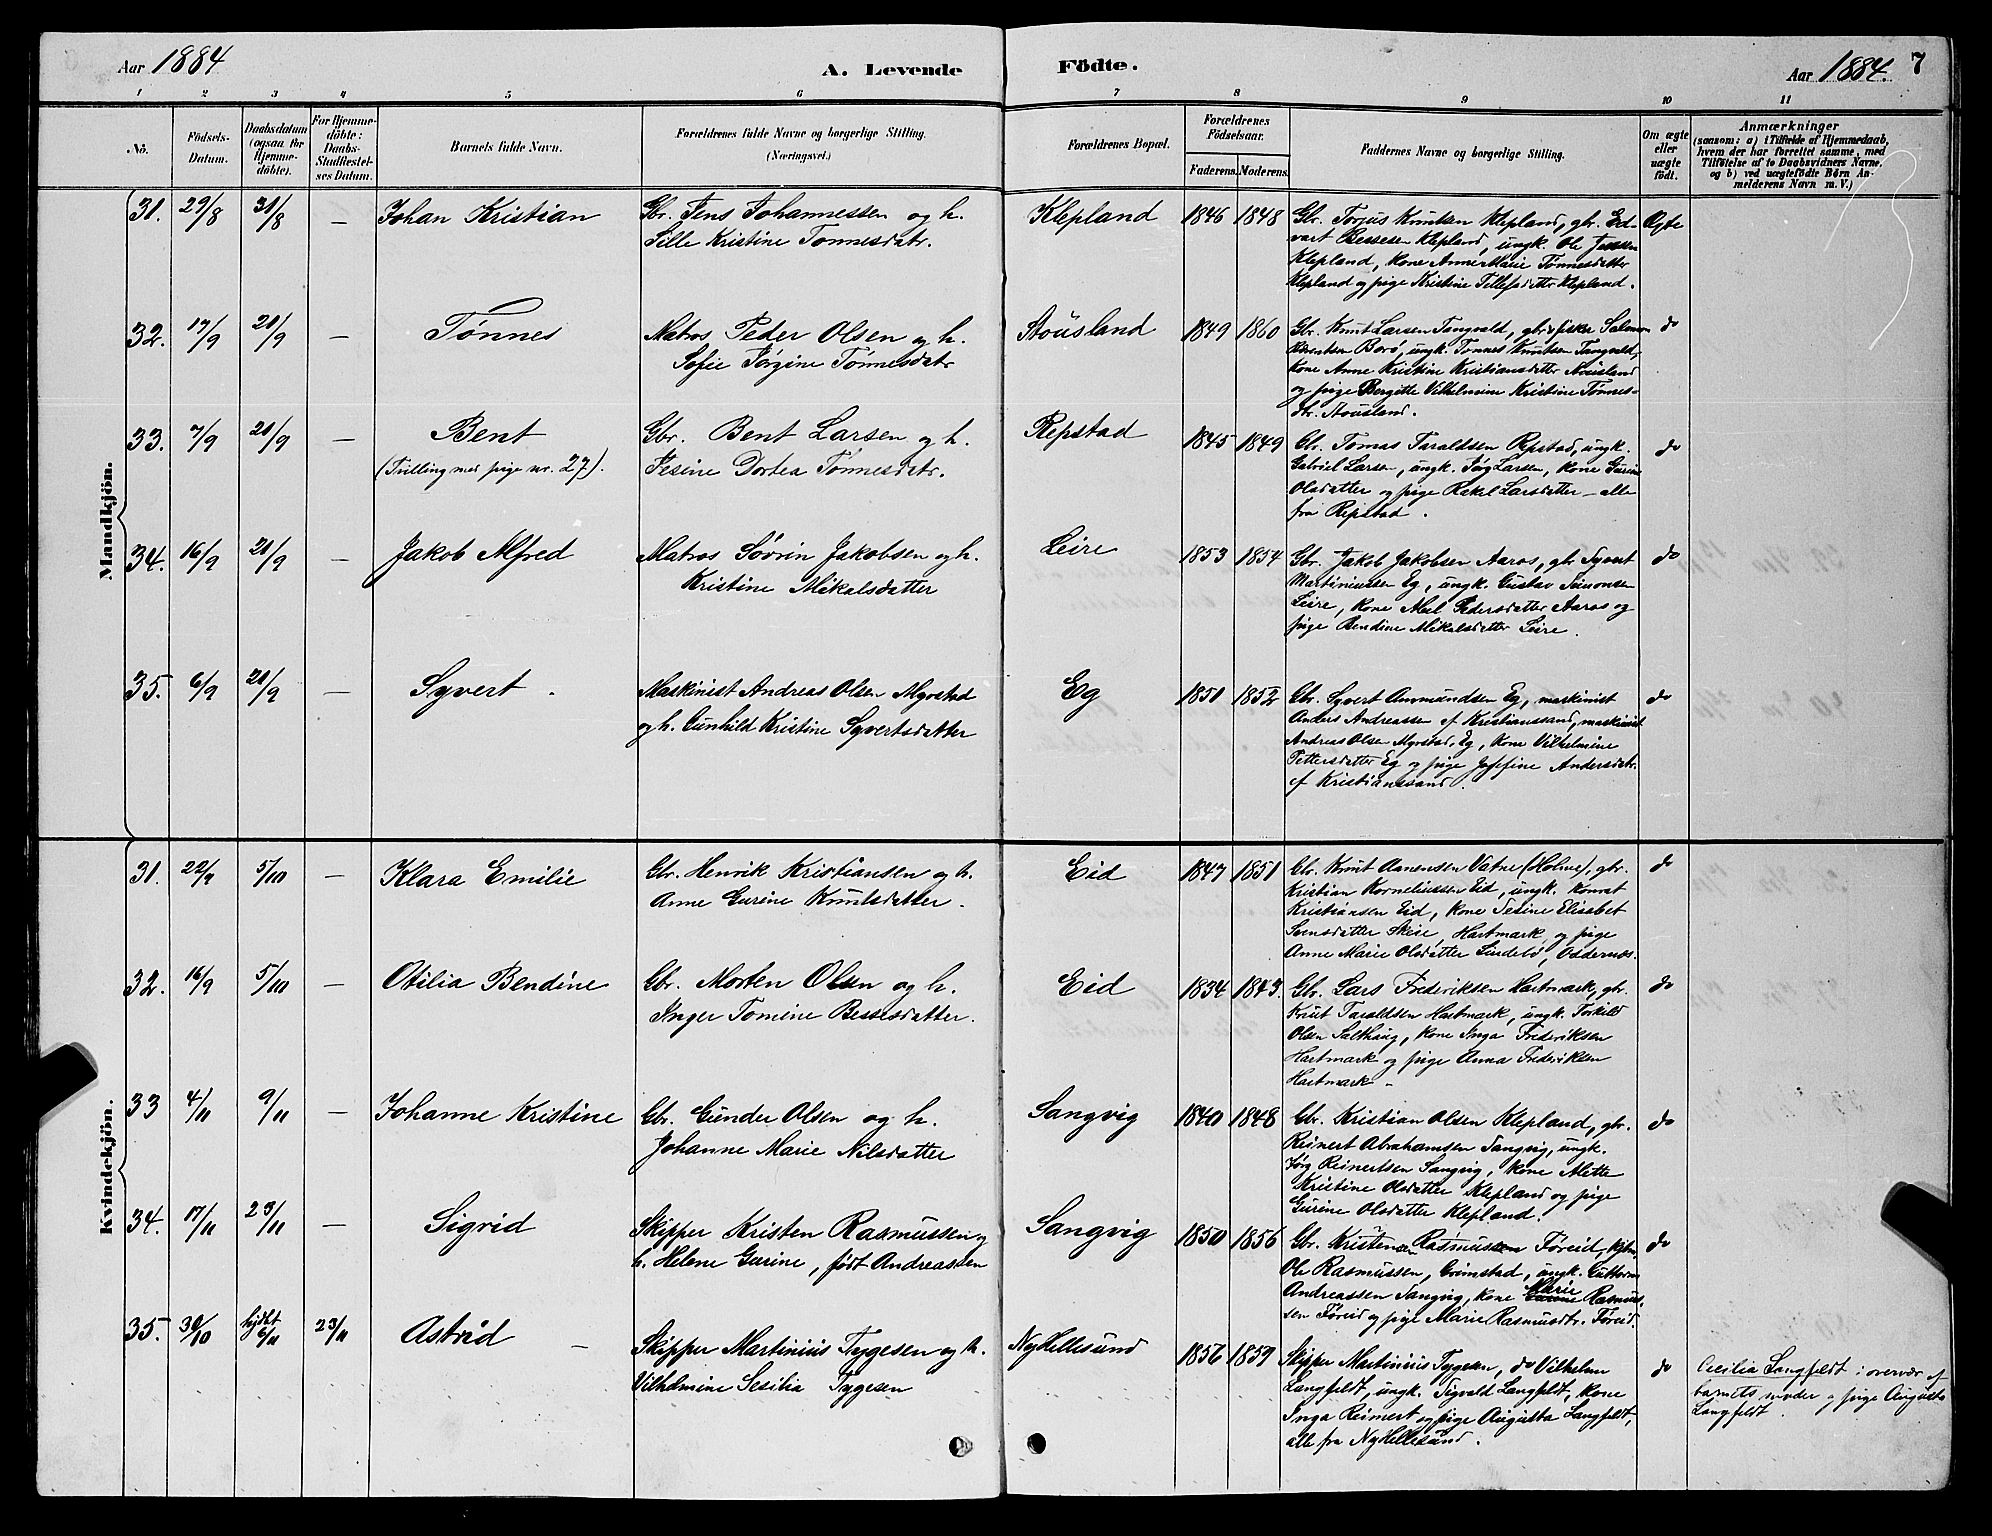 Aar 1884 A. Levende Födte. Aar 1884. 7
1 2 3 4 5 6 7 8 9 10 11
No.
Födsels-Datum.
Daabsdatum (ogsaa for Hjemmedöbte).
For Hjemmedöbte: Daabs-Stadfæstelses Datum.
Barnets fulde Navn.
Forældrenes fulde Navne og borgerlige Stilling. (Næringsvei.)
Forældrenes Bopæl.
Forældrenes Födselsaar.
Faderens. Moderens.
Faddernes Navne og borgerlige Stilling.
Om ægte eller uægte födt.
Anmærkninger
(saasom: a) i Tilfælde af Hjemmedaab, hvem der har forrettet samme, med Tilföielse af to Daabsvidners Navne, og b) ved uægtefödte Börn Anmelderens Navn m. V.)
Mandkjön.
31. 29/8 31/8 — Johan Kristian
Gbr. Jens Johannessen og h.
Sille Kristine Tonnesdatr.
Klepland 1846 1848
Gbr. Torjus Knutsen Klepland, gbr. Ed-
vart Bessesen Klepland, ungk. Ole Jenssen
Klepland, kone Anne Marie Tønnesdatter
Klepland og pige Kristine Tellefsdatter Klepland.
Ægte
32. 17/9 21/9 — Tønnes
Matros Peder Olsen og h.
Sofie Jørgine Tønnesdatr
Stousland 1849 1860
Gbr. Knut Larsen Tangvald, gbr. & fisker Salmon
Berentsen Borø, ungk. Tonnes Knutsen Tangvald,
kone Anne Kristine Kristiansdatter Stousland
og pige Bergitte Vilhelmine Kristine Tønnes-
dtr. Stousland.
do
33. 7/9 21/9 — Bent
(Tvilling med pige nr. 27).
Gbr. Bent Larsen og h.
Jesine Dortea Tønnesdatr.
Repstad 1845 1849
Gbr. Tomas Taraldsen Repstad, ungk.
Gabriel Larsen, ungk. Jørg Larsen, kone Gurine
Olsdatter og pige Rakel Larsdatter — alle
fra Repstad.
do
34. 16/9 21/9 — Jakob Alfred
Matros Søvrin Jakobsen og h.
Kristine Mikalsdatter
Leire 1853 1854
Gbr. Jakob Jakobsen Aaros, gbr Syvert
Martiniussen Eg, ungk. Gustav Simonsen
Leire, kone Mæl Pedersdatter Aaros og
pige Bendine Mikalsdatter Leire.
do
35. 6/9 21/9 — Syvert.
Maskinist Andreas Olsen Myrstad
og h. Gunhild Kristine Syvertsdatter
Eg 1851 1852
Gbr. Syvert Ammundsen Eg, maskinist
Anders Andreassen af Kristianssand, maskinist
Andreas Olsen Myrstad, Eg, kone Vilhelmine
Pettersdatter Eg og pige Josefine Andersdatr.
af Kristianssand.
do
Kvindekjön.
31. 22/9 5/10 — Klara Emilie
Gbr. Henrik Kristiansen og h.
Anne Gurine Knutsdatter.
Eid 1847 1851
Gbr. Knut Aanensen Vatne (Holme), gbr.
Kristian Korneliussen Eid, ungk. Konrat
Kristiansen Eid, kone Tesine Elisabet
Svensdatter Skeie, Hartmark og pige
Anne Marie Olsdatter Lindebø, Oddernæs.
do
32. 16/9 5/10 — Otilia Bendine
Gbr. Morten Olsen og h.
Inger Tomine Bessesdatter.
Eid 1834 1843.
Gbr. Lars Frederiksen Hartmark, gbr.
Knut Taraldsen Hartmark, ungk. Torkild
Olsen Salthaug, kone Inga Frederiksen
Hartmark og pige Anna Frederiksen
Hartmark —
do
33 4/11 9/11 — Johanne Kristine
Gbr. Gunder Olsen og h.
Johanne Marie Nilsdatter
Sangvig 1840 1848
Gbr. Kristian Olsen Klepland, gbr.
Reinert Abrahamsen Sangvig, ungk.
Jørg Reinertsen Sangvig, kone Mette
Kristine Olsdatter Klepland og pige
Gurine Olsdatter Klepland.
do
34. 17/11 23/11 — Sigrid
Skipper Kristen Rasmussen og
h. Helene Gurine, født Andreassen
Sangvig 1850 1856
Gbr. Kristen Rasmussen Føreid, kjbm.
Ole Rasmussen, Grimstad, ungk. Guttorm
Andreassen Sangvig, kone Marie Rasmus-
sen Føreid og pige Marie Rasmusdtr. Føreid.
do
35. 30/10 hjdbt 6/11 23/11 Astrid —
Skipper Martinius Tygesen og h.
Vilhelmine Sesilia Tygesen
Ny Hellesund 1856 1859
Skipper Martinius Tygesen, do Vilhelm
Langfeldt, ungk. Sigvald Langfeldt, kone
Inga Reinert og pige Augusta Langfeldt,
alle fra Ny Hellesund.
do
Cecilia Langfeldt i overvær af
barnets moder og pige Augusta
Langfeldt.